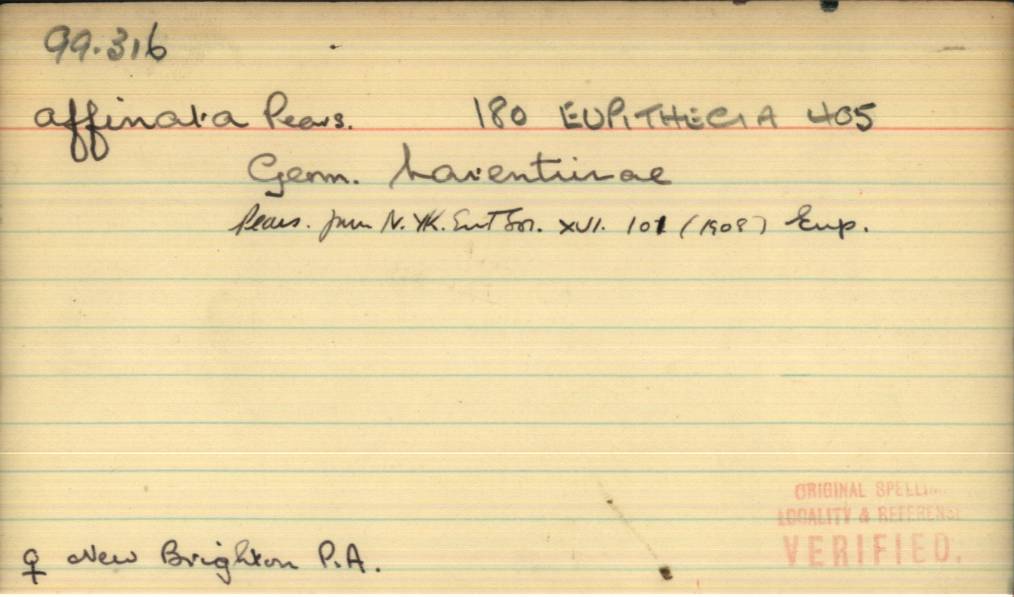 99.316
affinata Pears. 180 EUPITHECIA 405
Geom. Larentiinae
Pears. Journ N. YK. Ent Soc. XVI. 101 (1908) Eup.
ORIGINAL SPELLING
LOCALITY & REFERENSE
VERIFIED.
♀ New Brighton P.A.